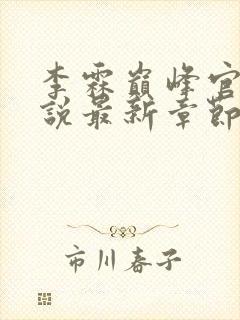 李霖巔峰官
說最新章節
市川春子